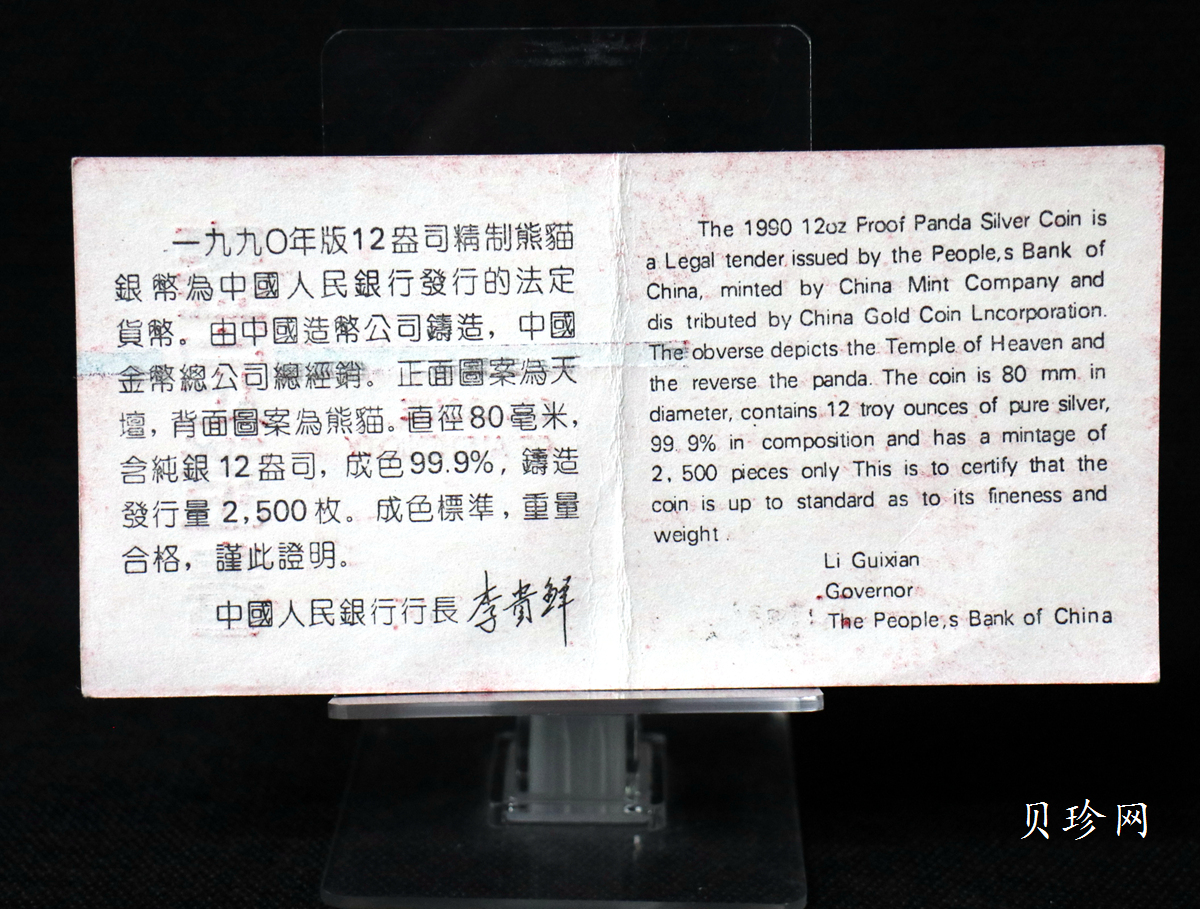 一九九〇年版12盎司精制熊貓
銀幣為中國人民銀行發行的法定
貨幣。由中國造幣公司鑄造，中國
金幣總公司總經銷。正面圖案為天
壇，背面圖案為熊貓。直徑80毫米，
含純銀12盎司，成色99.9%，鑄造
發行量2,500枚。成色標準，重量
合格，謹此證明。
中國人民銀行行長 李貴鲜
The 1990 12oz Froof Panda Silver Coin is
a Legal tender issued by the People,s Bank of
China, minted by China Mint Company and
dis tributed by China Gold Coin Lncorporation.
The obverse depicts the Temple of Heaven and
the reverse the panda. The coin is 80 mm in
diameter, contains 12 troy ounces of pure silver,
99.9% in composition and has a mintage of
2,500 pieces only This is to certify that the
coin is up to standard as to its fineness and
weight.
Li Guixian
Governor
The People,s Bank of China
贝珍网